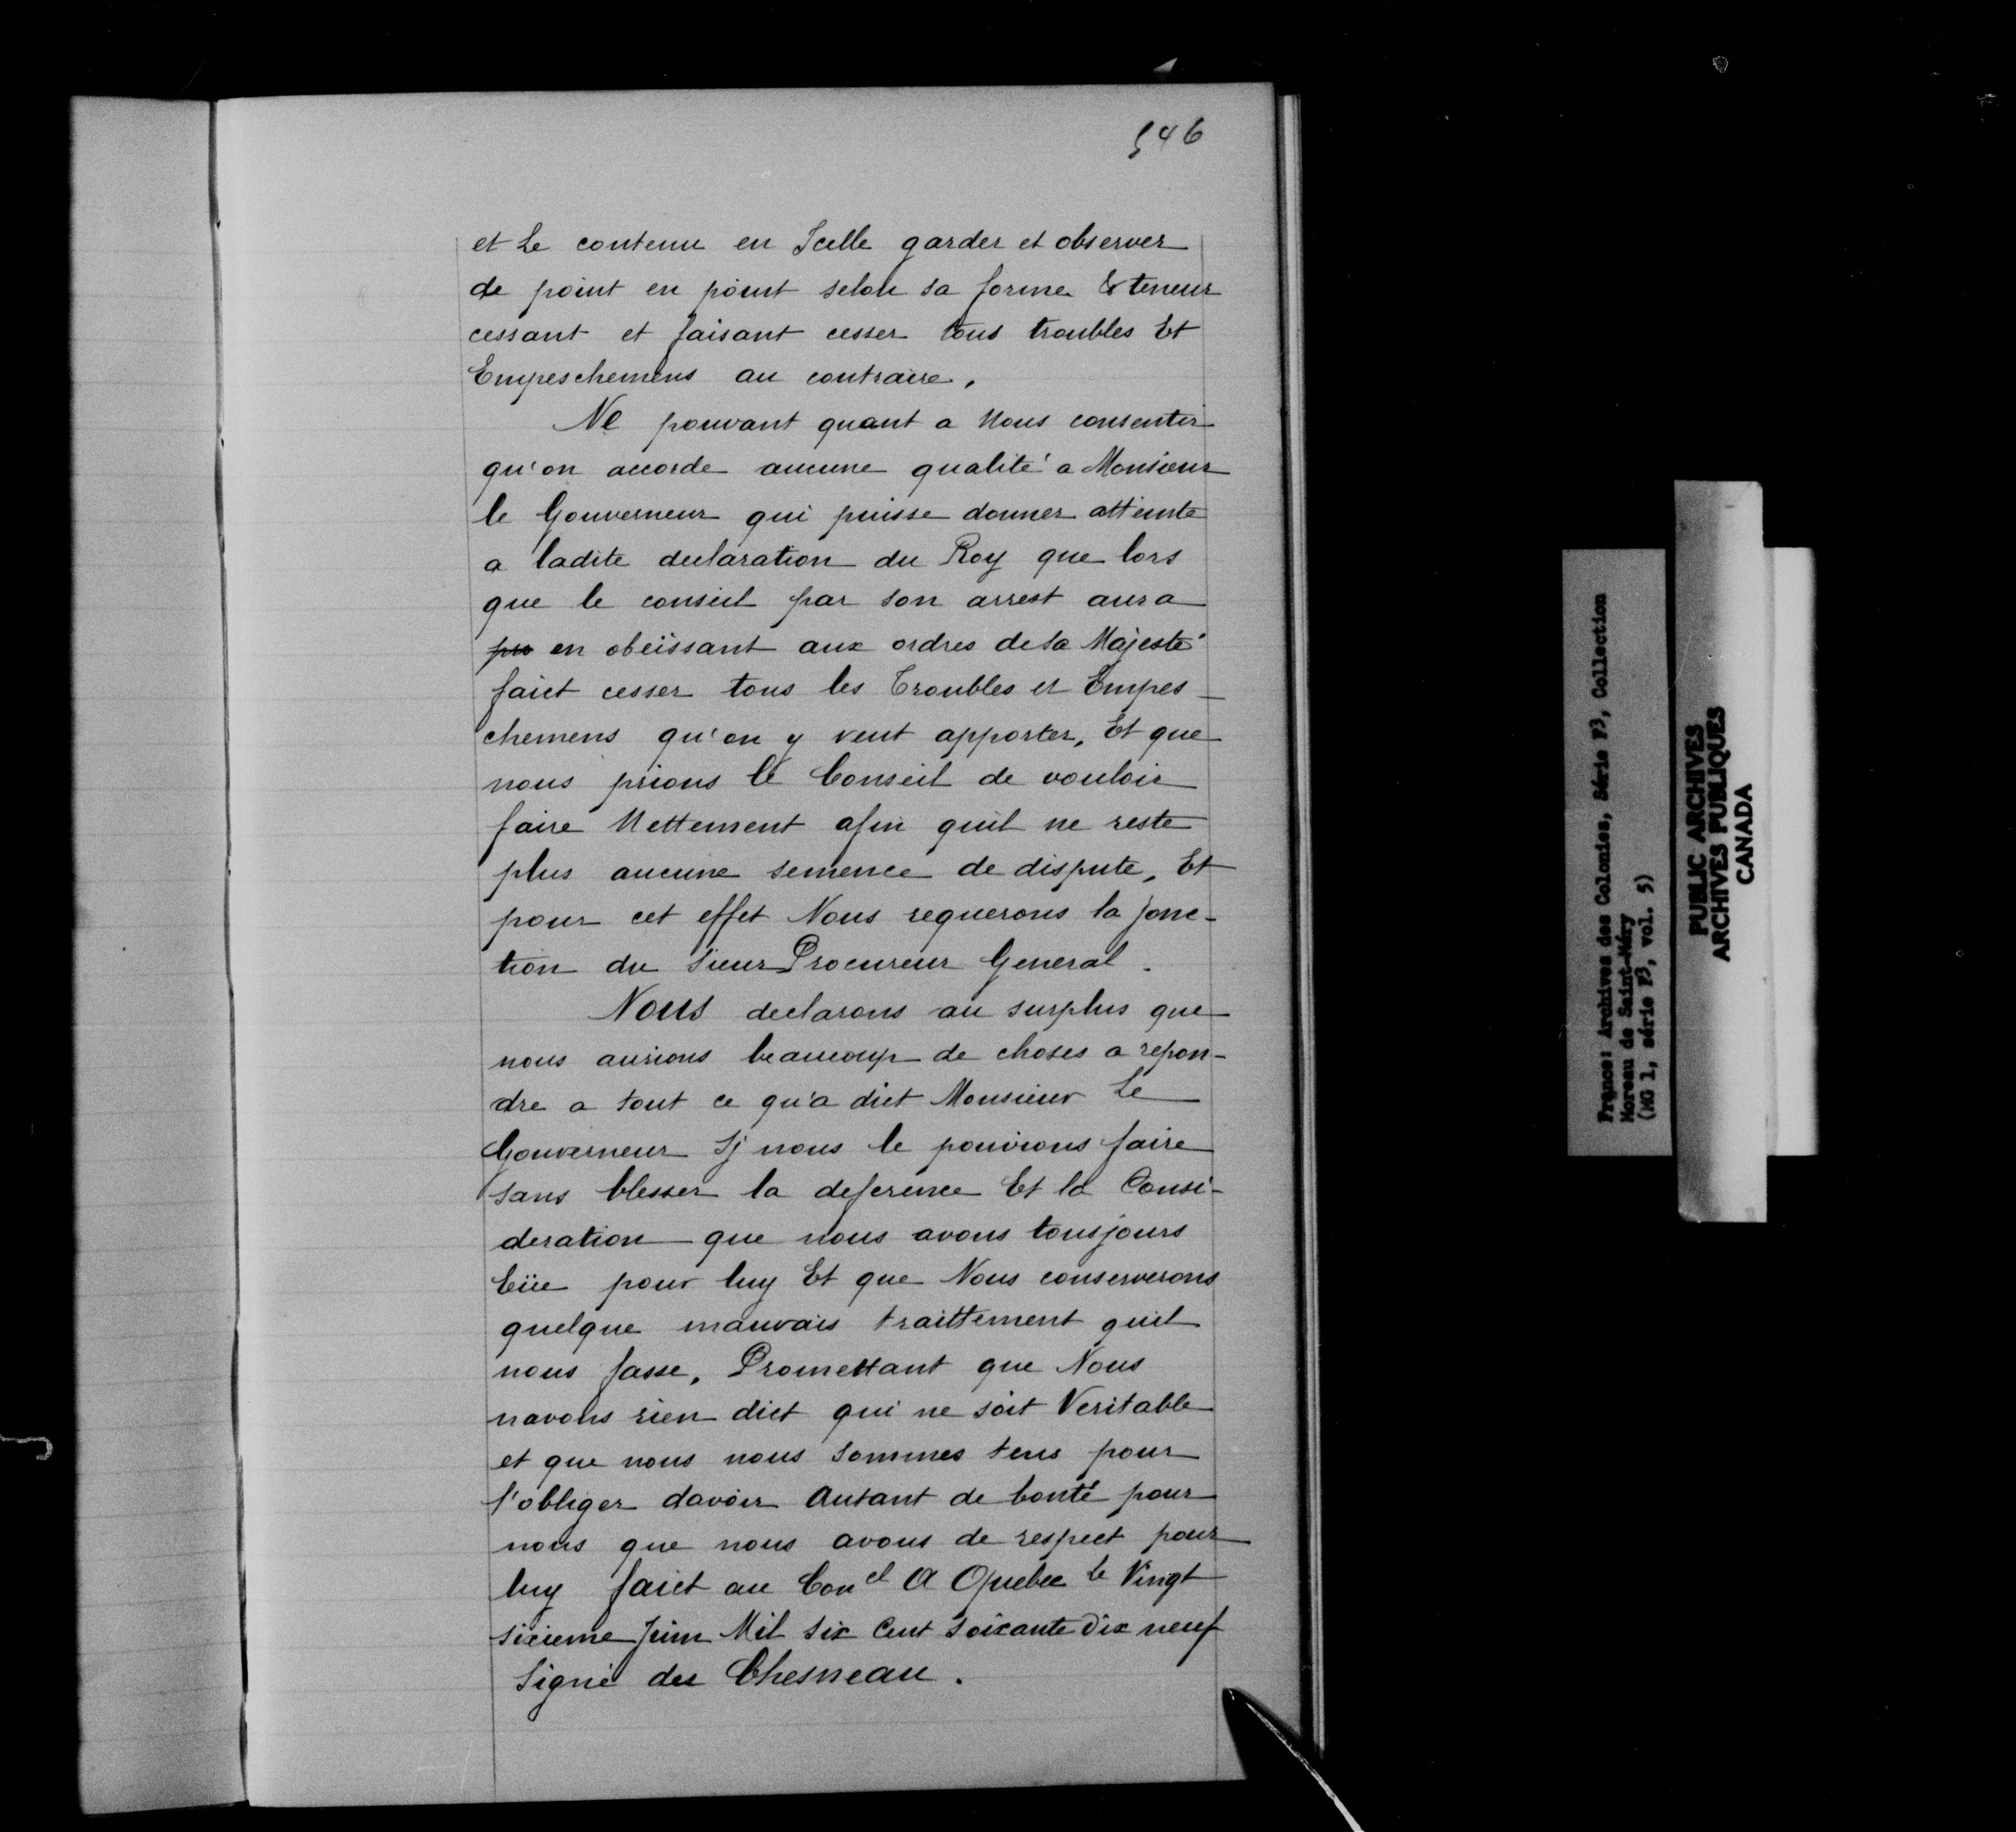 546
et Le contenu en Icelle garder et observer
de point en point selon sa forme & teneur
cessant et faisant cesser tous troubles Et
Empeschemens au contraire.
Ne pouvant quant a Nous consentir
qu'on accorde aucune qualité a Monsieur
le Gouverneur qui puisse donner atteinte
a ladite declaration du Roy que lors
que le conseil par son arrest aura
pu en obeïssant aux ordres de sa Majesté
faict cesser tous les Troubles et Empes-
chemens qu'on y veut apporter, Et que
nous prions le Conseil de vouloir
faire Nettement afin quil ne reste
plus aucune semence de dispute, Et
pour cet effet Nous requerons la jonc-
tion du Sieur Procureur General.
Nous declarons au surplus que
nous aurions beaucoup de choses a repon-
dre a tout ce qu'a dict Monsieur Le
Gouverneur Sj nous le pouvions faire
sans blesser la deference Et la Consi-
deration que nous avons tousjours
Eüe pour luy Et que Nous conserverons
quelque mauvais traittement quil
nous fasse, Promettant que Nous
navons rien dict qui ne soit Veritable
et que nous nous sommes tenus pour
l'obliger davoir Autant de bonté pour
nous que nous avons de respect pour
luy faict au Con el A Quebec le Vingt
sixieme Juin Mil six Cent soixante Dix neuf
Signé du Chesneau.
France: Archives des Colonies, Série F3, Collection
Moreau de Saint-Méry
(MG 1, série F3, vol. 5)
PUBLIC ARCHIVES
ARCHIVES PUBLIQUES
CANADA